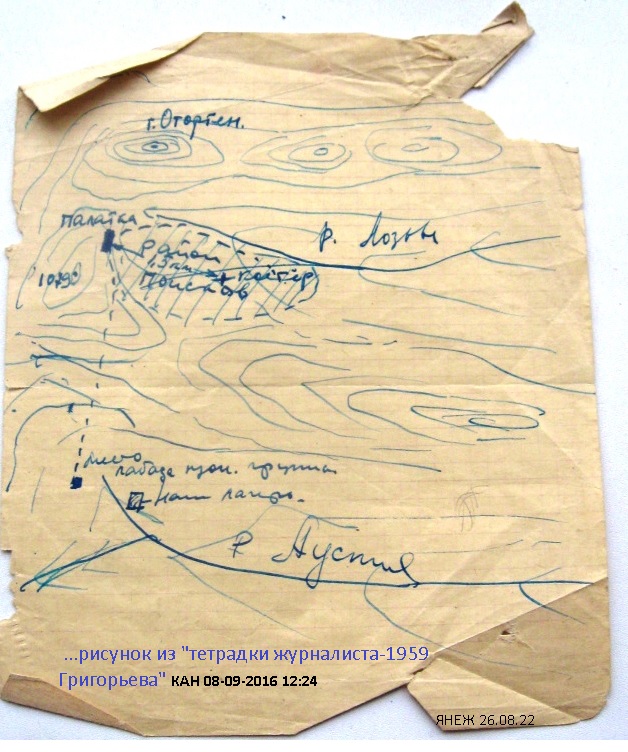 г. Отортен.
палатка
р. Лозьва
Район
1,5 км
костёр
поисков
1079
место
лабаза
группы
Наш лагерь.
р. Ауспия
...рисунок из "тетрадки журналиста-1959
Григорьева" КАН 08-09-2016 12:24
ЯНЕЖ 26.08.22